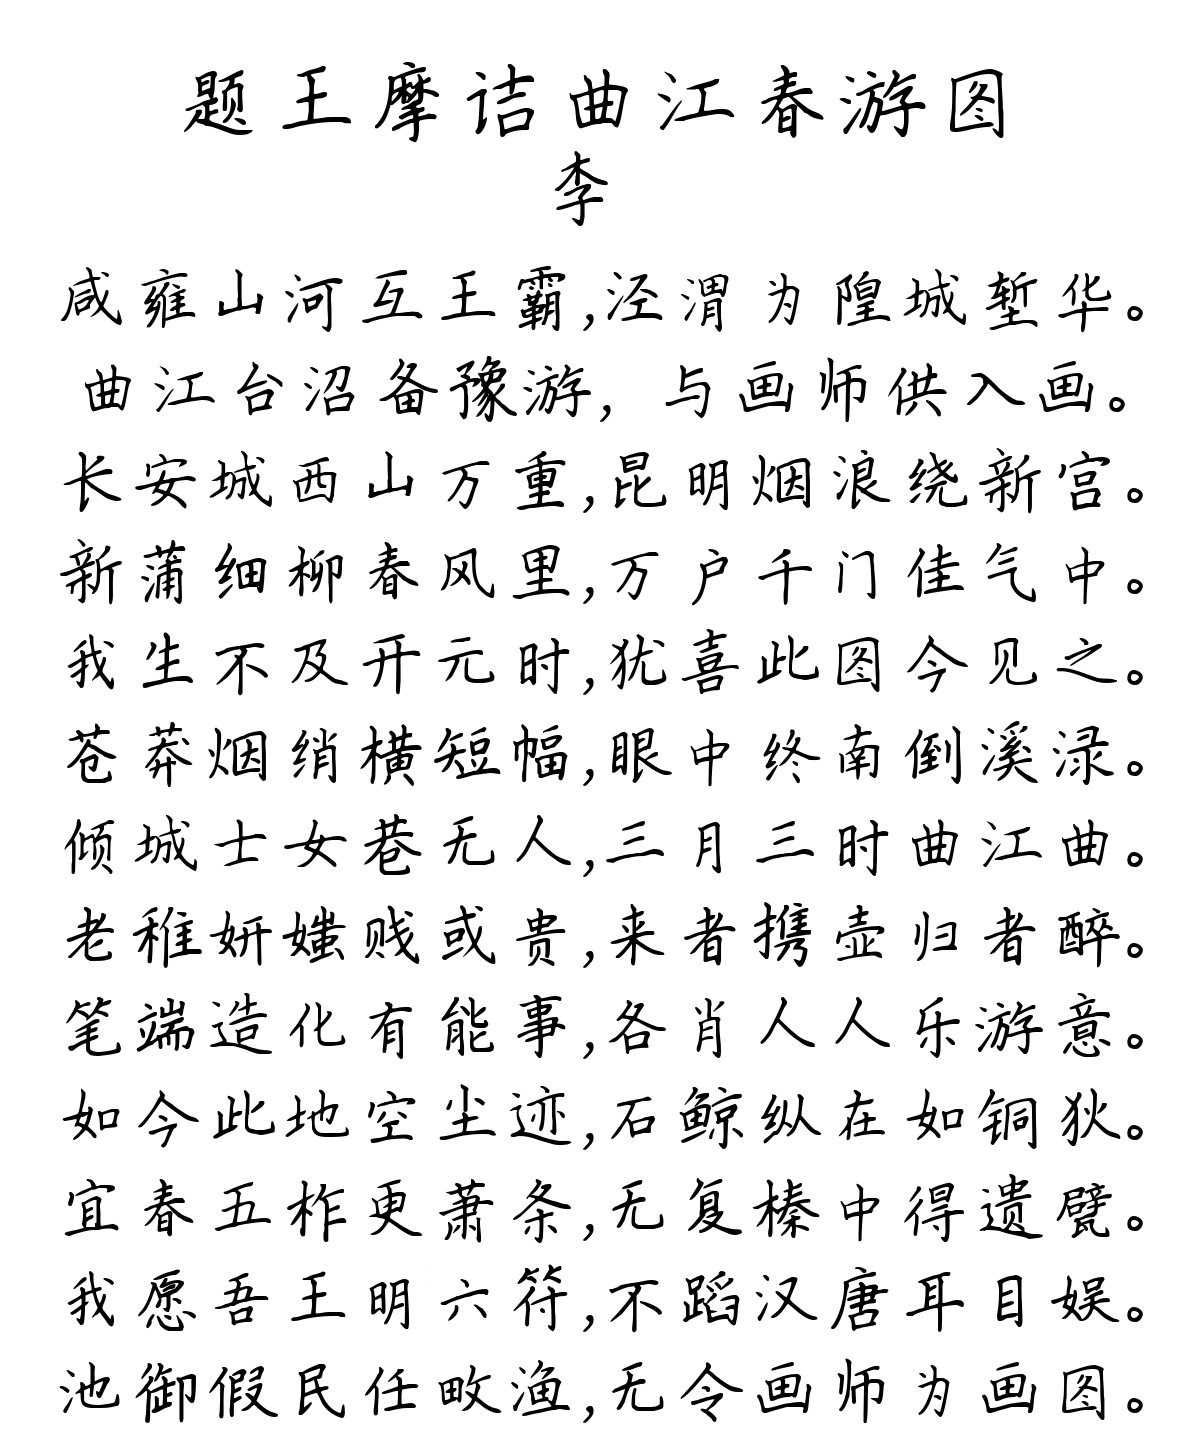 题王摩诘曲江春游图
李
咸雍山河互王霸,泾渭为隍城堑华。
曲江台沼备豫游,与画师供入画。
长安城西山万重,昆明烟浪绕新宫。
新蒲细柳春风里,万户千门佳气中。
我生不及开元时,犹喜此图今见之。
苍莽烟绡横短幅,眼中终南倒溪渌。
倾城士女巷无人,三月三时曲江曲。
老稚妍媸贱或贵,来者携壶归者醉。
笔端造化有能事,各肖人人乐游意。
如今此地空尘迹,石鲸纵在如铜狄。
宜春五柞更萧条,无复榛中得遗甓。
我愿吾王明六符,不蹈汉唐耳目娱。
池御假民任畋渔,无令画师为画图。